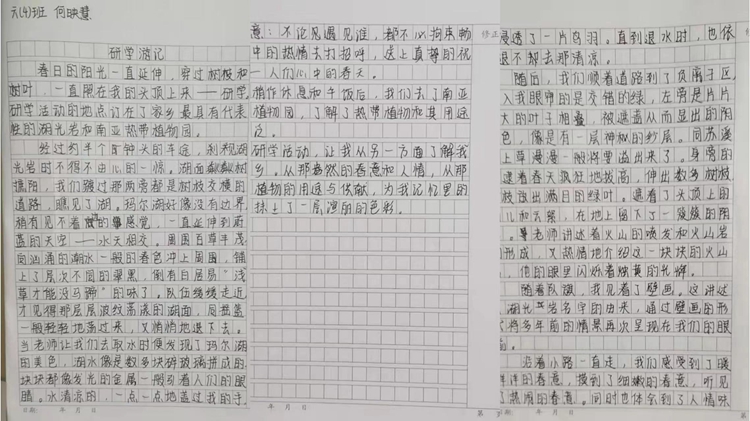 六(4)班 何映慧
研学游记
春日的阳光一直延伸，穿过树枝和
树叶，一直照在我的头顶上来——研学。
研学活动的地点订在了家乡最具有代表
性的湖光岩和南亚热带植物园。
经过约半个时钟头的车途，刹视湖
光岩时不得不由心的一惊。湖面
遮阳，我们骤过那两旁都是树枝交横的
道路，瞧见了湖。玛尔湖好像没有边界
稍有见不着感觉，一直延伸到蔚
蓝的天空——水天相交。周围百草丰茂
向汹涌的潮水一般的春色冲上周围，铺
上了层次不同的翠黑，倒有白居易"浅
草才能没马蹄"的味了。队伍缓缓走近
才见得那层层波纹荡漾的湖面，同蓝
一般轻轻地荡过来，又悄悄地退下去。
当老师让我们去取水时便发现了玛尔湖
的美色，湖水像是数多块碎玻璃拼成的
块块都像发光的金属一般引着人们的眼
睛。水清凉的，一点一点地盖过我的手
日期: 年 月 日
浸透了一片鸟羽。直到退水时，也依
退不却去那清凉。
随后，我们顺着道路到了负离子区
入我眼帘的是交错的绿，左旁是片片
大的叶子相叠，被遮盖从而显出的阴
色，像是有一层神秘的纱层。同苏漫
上草漫漫一般将要溢出来了。身旁的
遮着春天疯狂地拔高，伸出数多树枝
枝敌出满目的绿叶。遮着了头顶上的
儿和云絮，在地上留下了一簇簇的阴
。老师讲述着火山的喷发和火山岩
形成，又热情地介绍这一块块的火山
，他的眼里闪烁着烛黄的光辉。
随着队旗，我见着了壁画。这讲述
湖光岩名字的由来，通过壁画的形
将多年前的情景再次呈现在我们的眼
面。
沿着小路一直走，我们感受到了暖
洋洋的春意，摸到了细嫩的春意，听见
了热烈的春意。同时也体会到了人情味
日期: 年 月 日
修正
意：不论见遇见谁，都不必拘束畅
中的热情去打招呼，送上真挚的祝
一人们心中的春天。
稍作休息和午饭后，我们去了南亚
植物园，了解了热带植物和其用途
之。
研学活动，让我从另一方面了解我
乡。从那盎然的春意和人情，从那
植物的用途与供献，为我记忆里的
抹上了一层浓丽的色彩。
年 月 日
第